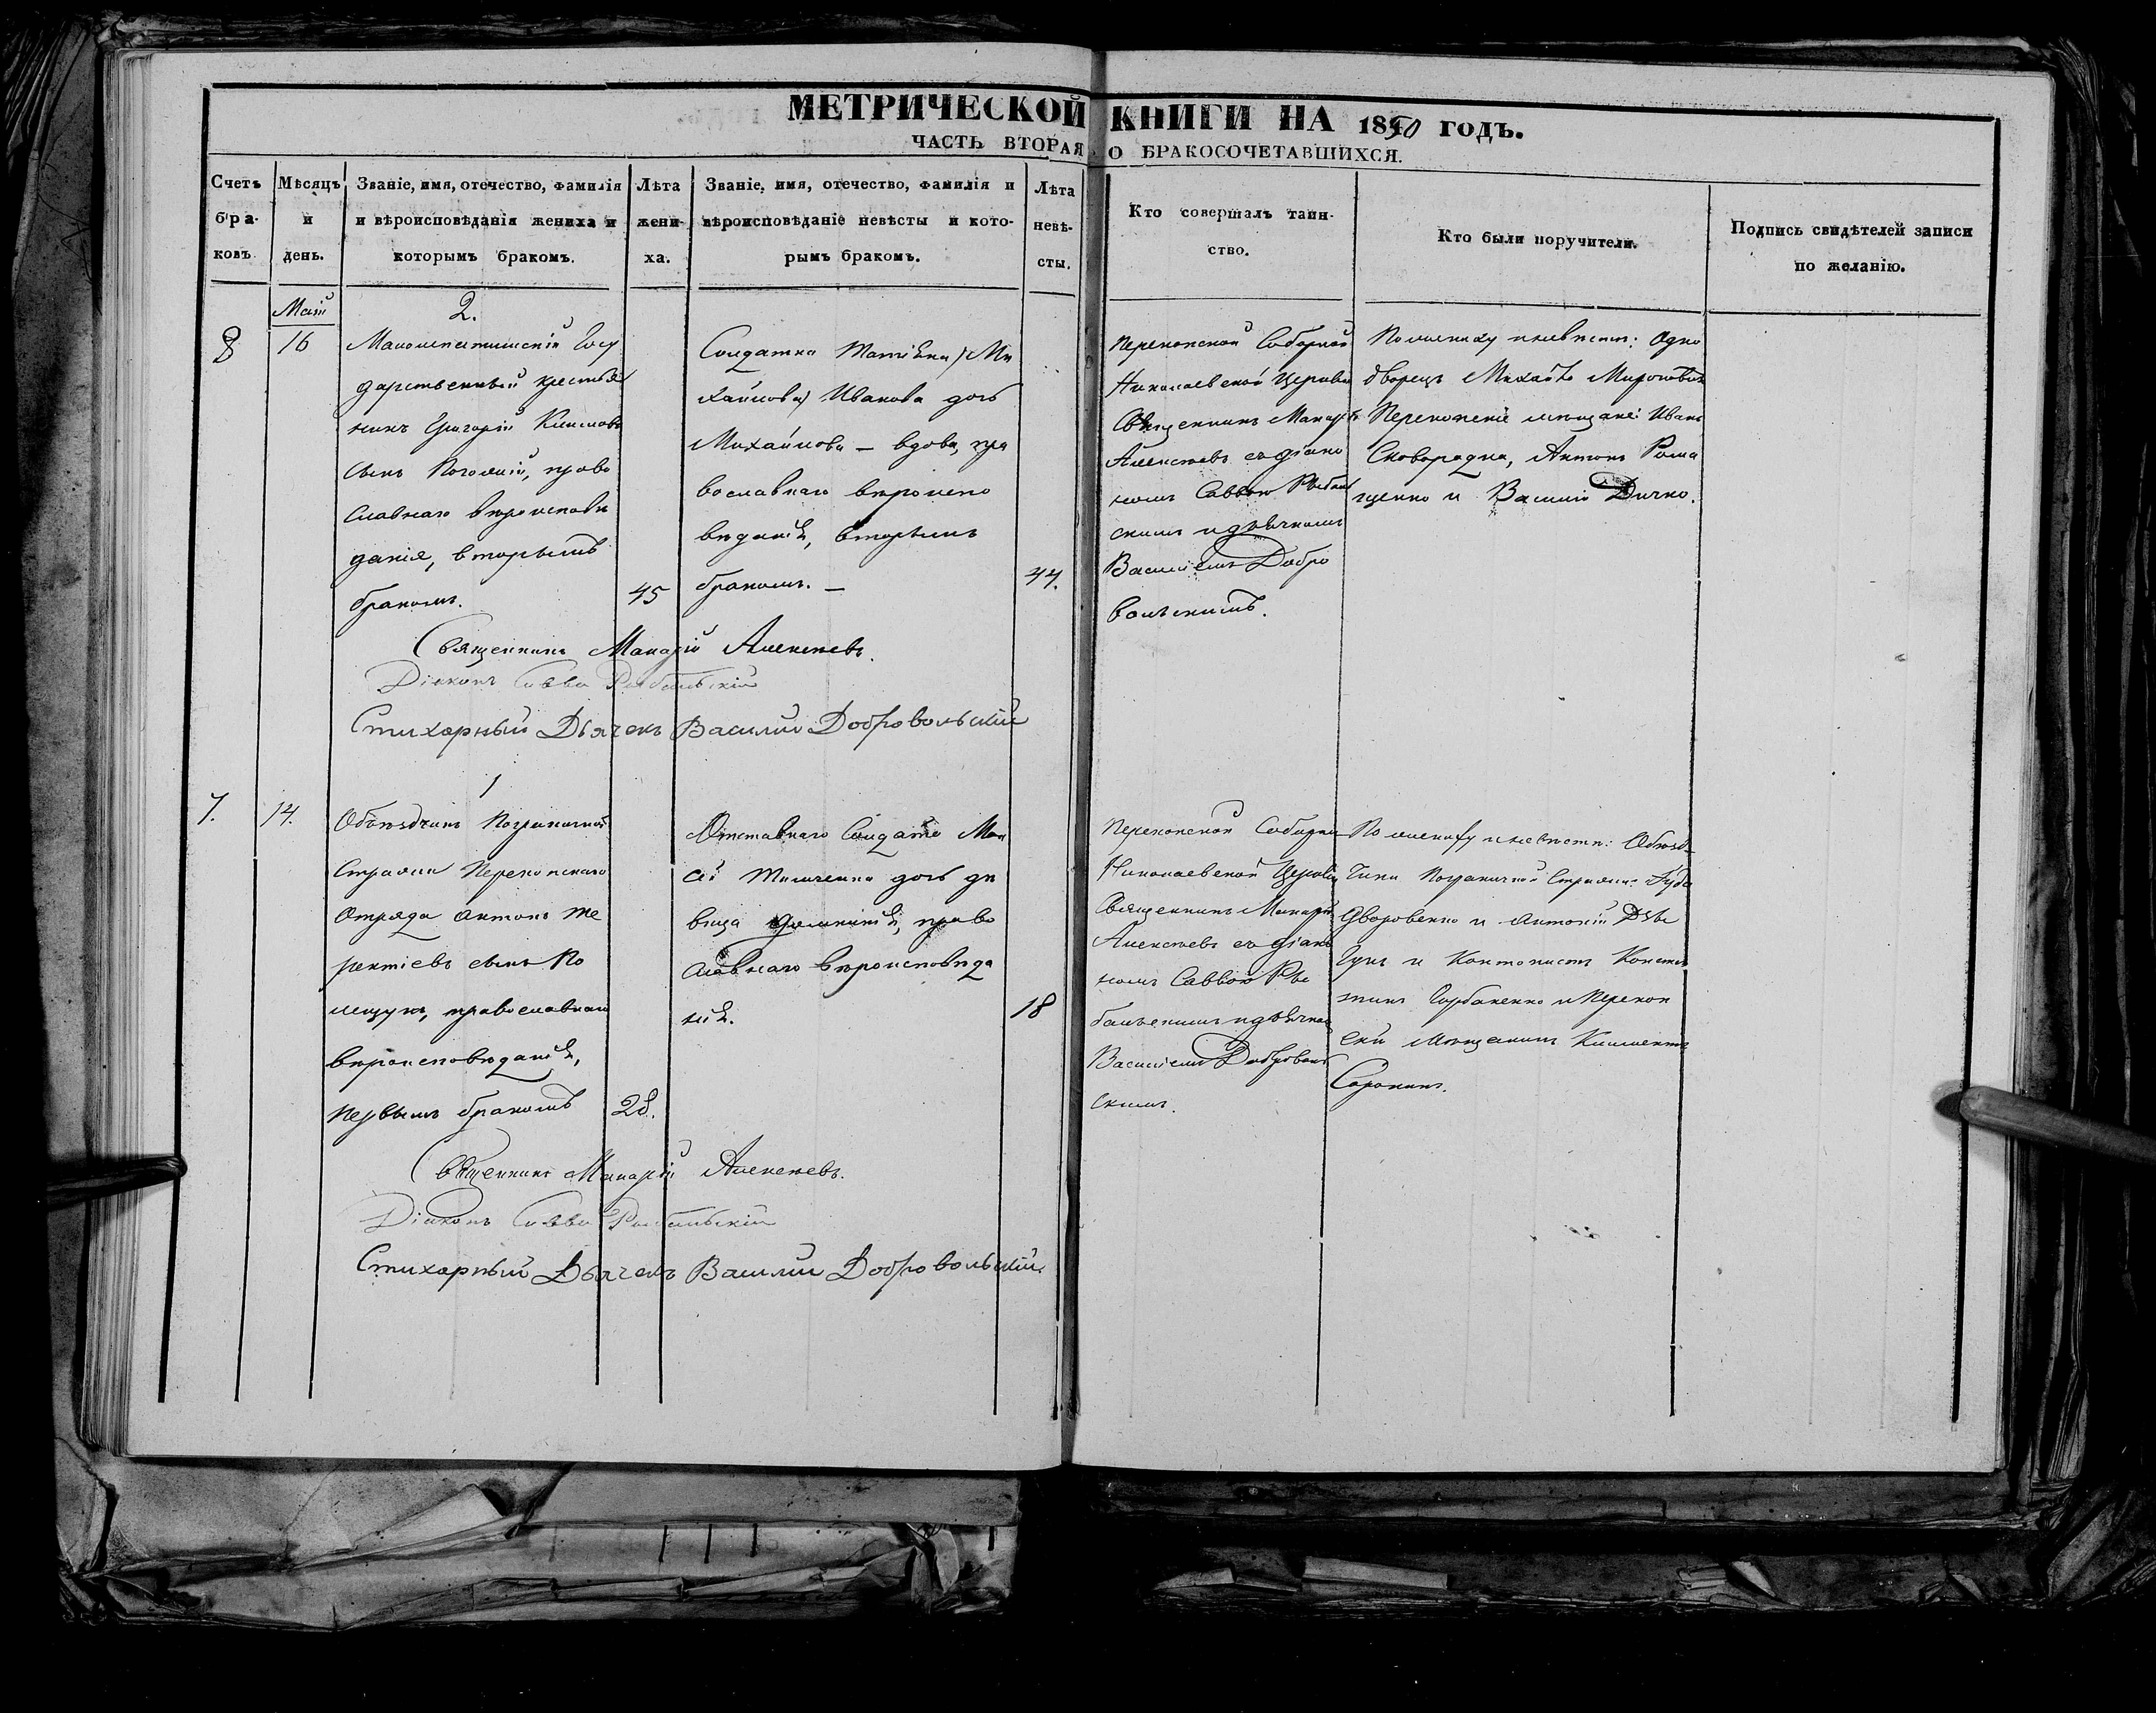 МЕТРИЧЕСКОЙ КНИГИ НА 1850 ГОДЪ.
ЧАСТЬ ВТОРАЯ О БРАКОСОЧЕТАВШИХСЯ.
Счетъ браковъ
Мѣсяцъ и день.
Званіе, имя, отечество, фамилія
и вѣроисповѣданія жениха и
которымъ бракомъ.
Лѣта
жени-
ха.
Званіе, имя, отечество, фамилія и
вѣроисповѣданіе невѣсты и кото-
рымъ бракомъ.
Лѣта
невѣ-
сты.
Кто совершалъ таин-
ство.
Кто были поручители.
Подпись свидѣтелей записи
по желанію.
Маій
8
16
2.
Госу
дарственный крестья
нинъ Григорій Климовъ
сынъ православнаго вѣроисповѣ
данія, вторымъ
бракомъ.
45
Солдатка Иванова дочь
Михайлова — вдова, пра
вославнаго вѣроиспо
вѣданія, вторымъ
бракомъ. —
44.
Перекопской Соборной
Николаевской Церкви
Священникъ Макарій
Алексѣевъ съ діако
номъ Саввою Рыбаль
скимъ и дьячкомъ
Василіемъ Добро
вольскимъ.
По жениху и невѣстѣ: Одно
дворецъ Михайло Мироновичъ
Перекопскіе мѣщане: Иванъ
Сковородка, Антонъ Рома
щенко и Василій Дичко.
Священникъ Макарій Алексѣевъ.
Діаконъ Савва Рыбальскій
Стихарный Дьячекъ Василій Добровольскій
7.
14.
1
Объѣздчикъ Пограничной
Стражи Перекопскаго
Отряда Антонъ Те
рентіевъ сынъ По
лещукъ, православнаго
вѣроисповѣданія,
первымъ бракомъ
28.
Отставнаго Солдата
дочь дѣ
вица право
славнаго вѣроисповѣда
нія.
18
Перекопской Соборной
Николаевской Церкви
Священникъ Макарій
Алексѣевъ съ діако
номъ Саввою Ры
бальскимъ и дьячкомъ
Василіемъ Доброволь
скимъ.
По жениху и невѣстѣ: Объѣзд-
чики Пограничной Стражи:
Яворовенко и Антоній
и Контонистъ Конста
тинъ Горбаненко и Перекоп
скій Мѣщанинъ Климентъ
Сорокинъ.
Священникъ Макарій Алексѣевъ.
Діаконъ Савва Рыбальскій
Стихарный Дьячекъ Василій Добровольскій.